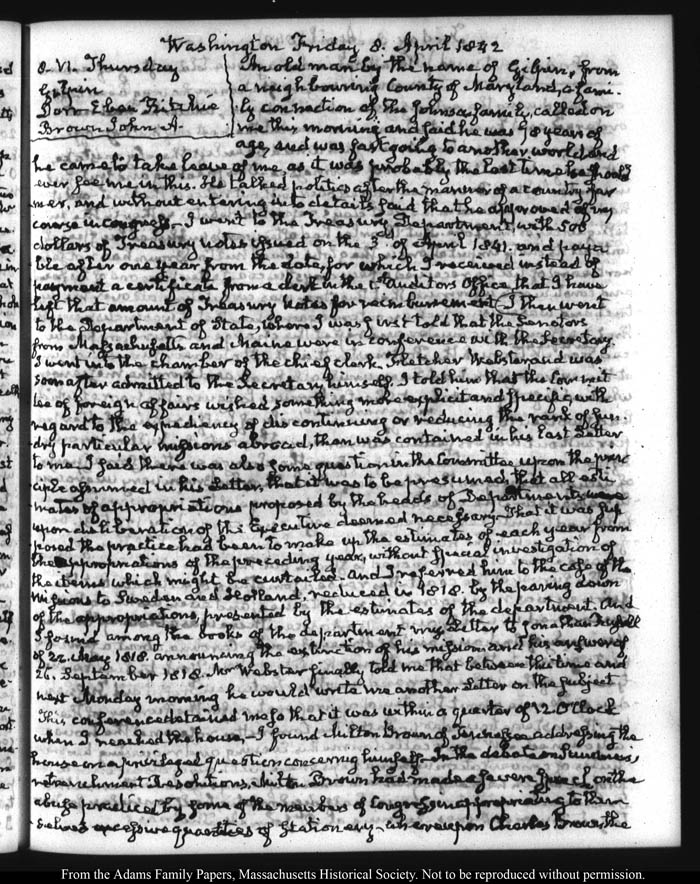 Washington Friday 8. April 1842
8. VI. Thursday
Gilpin
Dorr Eben Ritchie
Brown John A.
An old man by the name of Gilpin, from
a neighbouring County of Maryland, a fami-
ly connection of the Johnson family, called on
me this morning and said he was 98 years of
age, and was fast going to another world and
he came to take leave of me as it was probably the last time he should
ever see me in this. He talked politics after the manner of a country far
mer, and without entering into details said that he approved of my
course in congress. I went to the Treasury Department, with 500
dollars of Treasury notes issued on the 3d. of April 1841. and paya
ble after one year from the date, for which I received instead of
payment a certificate from a clerk in the 1st. Auditors Office that I have
left that amount of Treasury Notes for reimbursement. I then went
to the Department of State, where I was first told that the Senators
from Massachusetts and Maine were in conference with the Secretary.
I went into the chamber of the chief clerk, Fletcher Webster and was
soon after admitted to the Secretary himself. I told him that the Commit
tee of foreign affairs wished something more explicit and specific with
regard to the expediency of discontinuing or reducing the rank of sun-
dry particular missions abroad, than was contained in his last Letter
to me. I said there was also some question in the Committee upon the prin
ciple assumed in his Letter, that it was to be presumed, that all esti
mates of appropriations proposed by the heads of Departments were
upon deliberation of the Executive deemed necessary. That it was sup
posed the practice had been to make up the estimates of each year from
the appropriations of the preceding year, without special investigation of
the items which might be curtailed. and I referred him to the case of the
missions to Sweden and Holland, reduced in 1818. by the paring down
of the appropriations, presented by the estimates of the department. And
I found among the books of the department my Letter to Jonathan Russell
of 22. May 1818. announcing the extinction of his mission and his answer of
26. September 1818. Mr Webster finally told me that between this time and
next Monday morning he would write me another Letter on the subject
This conference detained me so that it was within a quarter of 12 O'Clock
when I reached the house. I found Milton Brown of Tennessee addressing the
house on a privileged question concerning himself. In the debate on Summers's,
retrenchment Resolutions, Milton Brown had made a severe speech on the
abuse practiced by some of the members of Congress in appropriating to them
selves excessive quantities of Stationery, whereupon Charles Brown, the
From the Adams Family Papers, Massachusetts Historical Society. Not to be reproduced without permission.